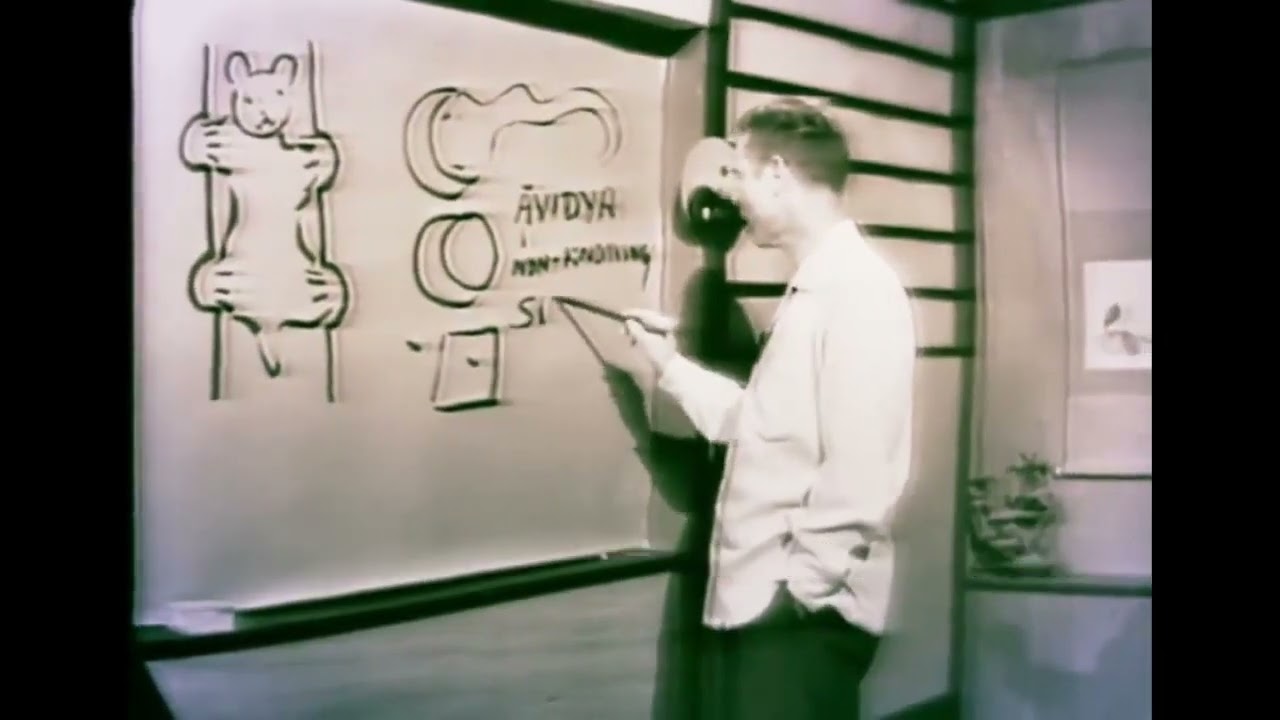 ĀVIDYA
NON-KNOWING
SI